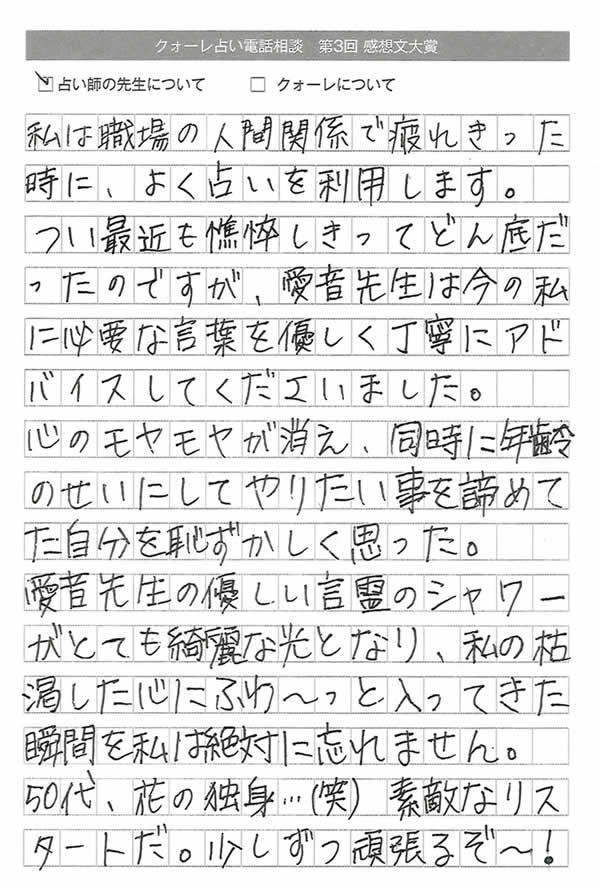 クォーレ占い電話相談　第3回 感想文大賞
☑占い師の先生について　□ クォーレについて
私は職場の人間関係で疲れきった
時に、よく占いを利用します。
つい最近も憔悴しきってどん底だ
ったのですが、愛音先生は今の私
に必要な言葉を優しく丁寧にアド
バイスしてくださいました。
心のモヤモヤが消え、同時に年齢
のせいにしてやりたい事を諦めて
た自分を恥ずかしく思った。
愛音先生の優しい言霊のシャワー
がとても綺麗な光となり、私の枯
渇した心にふわ～っと入ってきた
瞬間を私は絶対に忘れません。
50代、花の独身…(笑) 素敵なリス
タートだ。少しずつ頑張るぞ～！